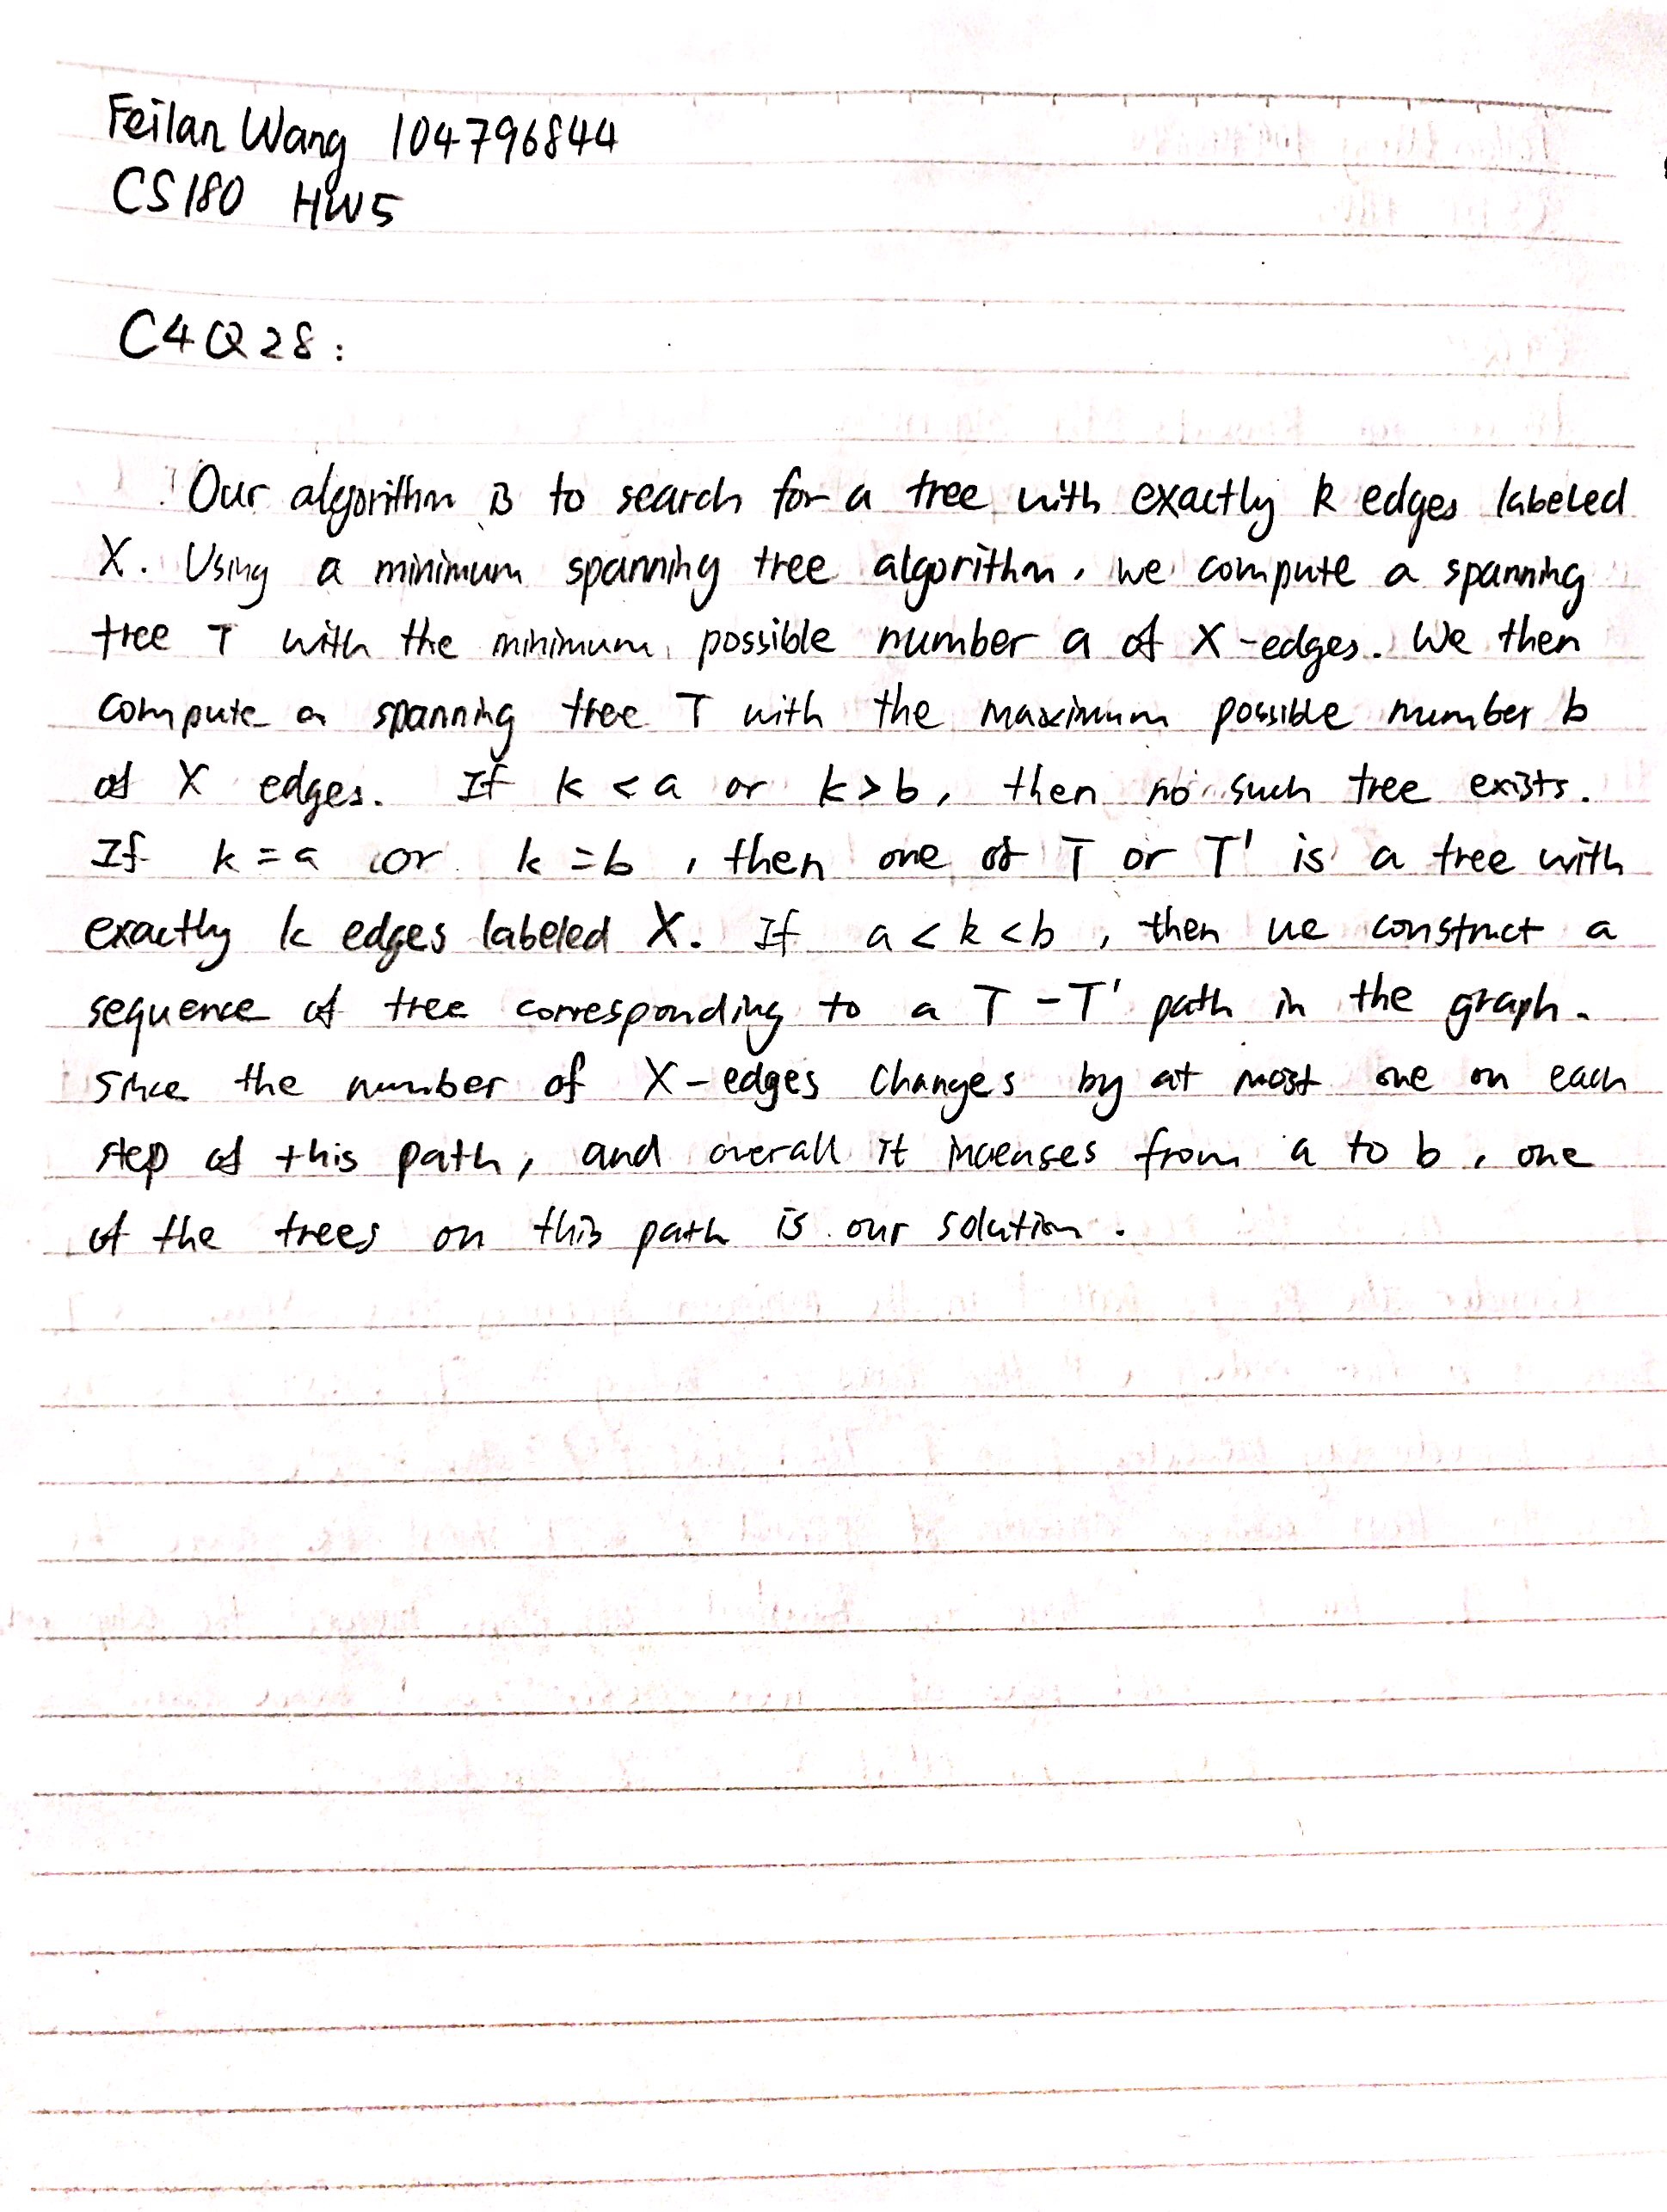 Feilan Wang 104796844
CS180 HW5
C4Q28:
Our algorithm is to search for a tree with exactly k edges labeled
X. Using a minimum spanning tree algorithm, we compute a spanning
tree T with the minimum possible number a of X-edges. We then
compute a spanning tree T with the maximum possible number b
of X edges. If k < a or k > b, then no such tree exists.
If k = a or k = b, then one of T or T' is a tree with
exactly k edges labeled X. If a < k < b, then we construct a
sequence of tree corresponding to a T-T' path in the graph.
Since the number of X-edges changes by at most one on each
step of this path, and overall it increases from a to b, one
of the trees on this path is our solution.